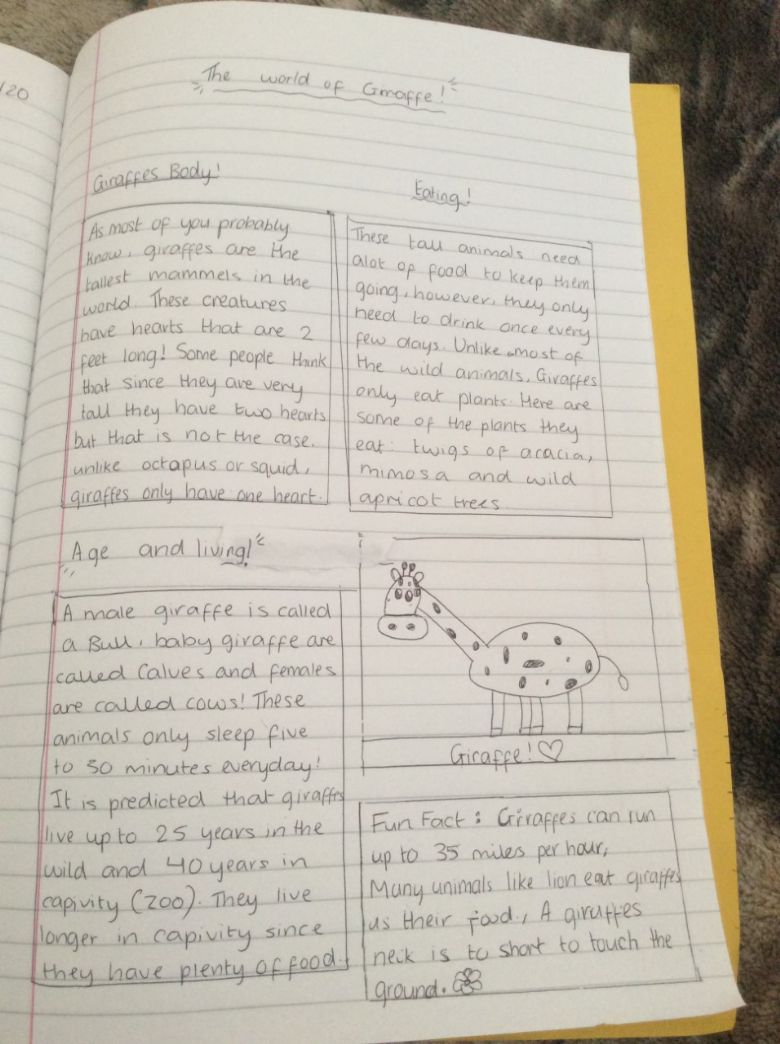 /20
The world of Giraffe!
Giraffes Body!
As most of you probably
know, giraffes are the
tallest mammels in the
world. These creatures
have hearts that are 2
feet long! Some people think
that since they are very
tall they have two hearts
but that is not the case.
unlike octapus or squid,
giraffes only have one heart.
Eating!
These tall animals need
alot of food to keep them
going, however, they only
need to drink once every
few days. Unlike most of
the wild animals, Giraffes
only eat plants. Here are
some of the plants they
eat: twigs of acacia,
mimosa and wild
apricot trees.
Age and living!
A male giraffe is called
a Bull, baby giraffe are
called Calves and females
are called cows! These
animals only sleep five
to 30 minutes everyday!
It is predicted that giraffes
live up to 25 years in the
wild and 40 years in
capivity (zoo). They live
longer in capivity since
they have plenty of food.
Giraffe!
Fun Fact: Giraffes can run
up to 35 miles per hour,
Many animals like lion eat giraffes
as their food, A giraffes
neck is to short to touch the
ground.